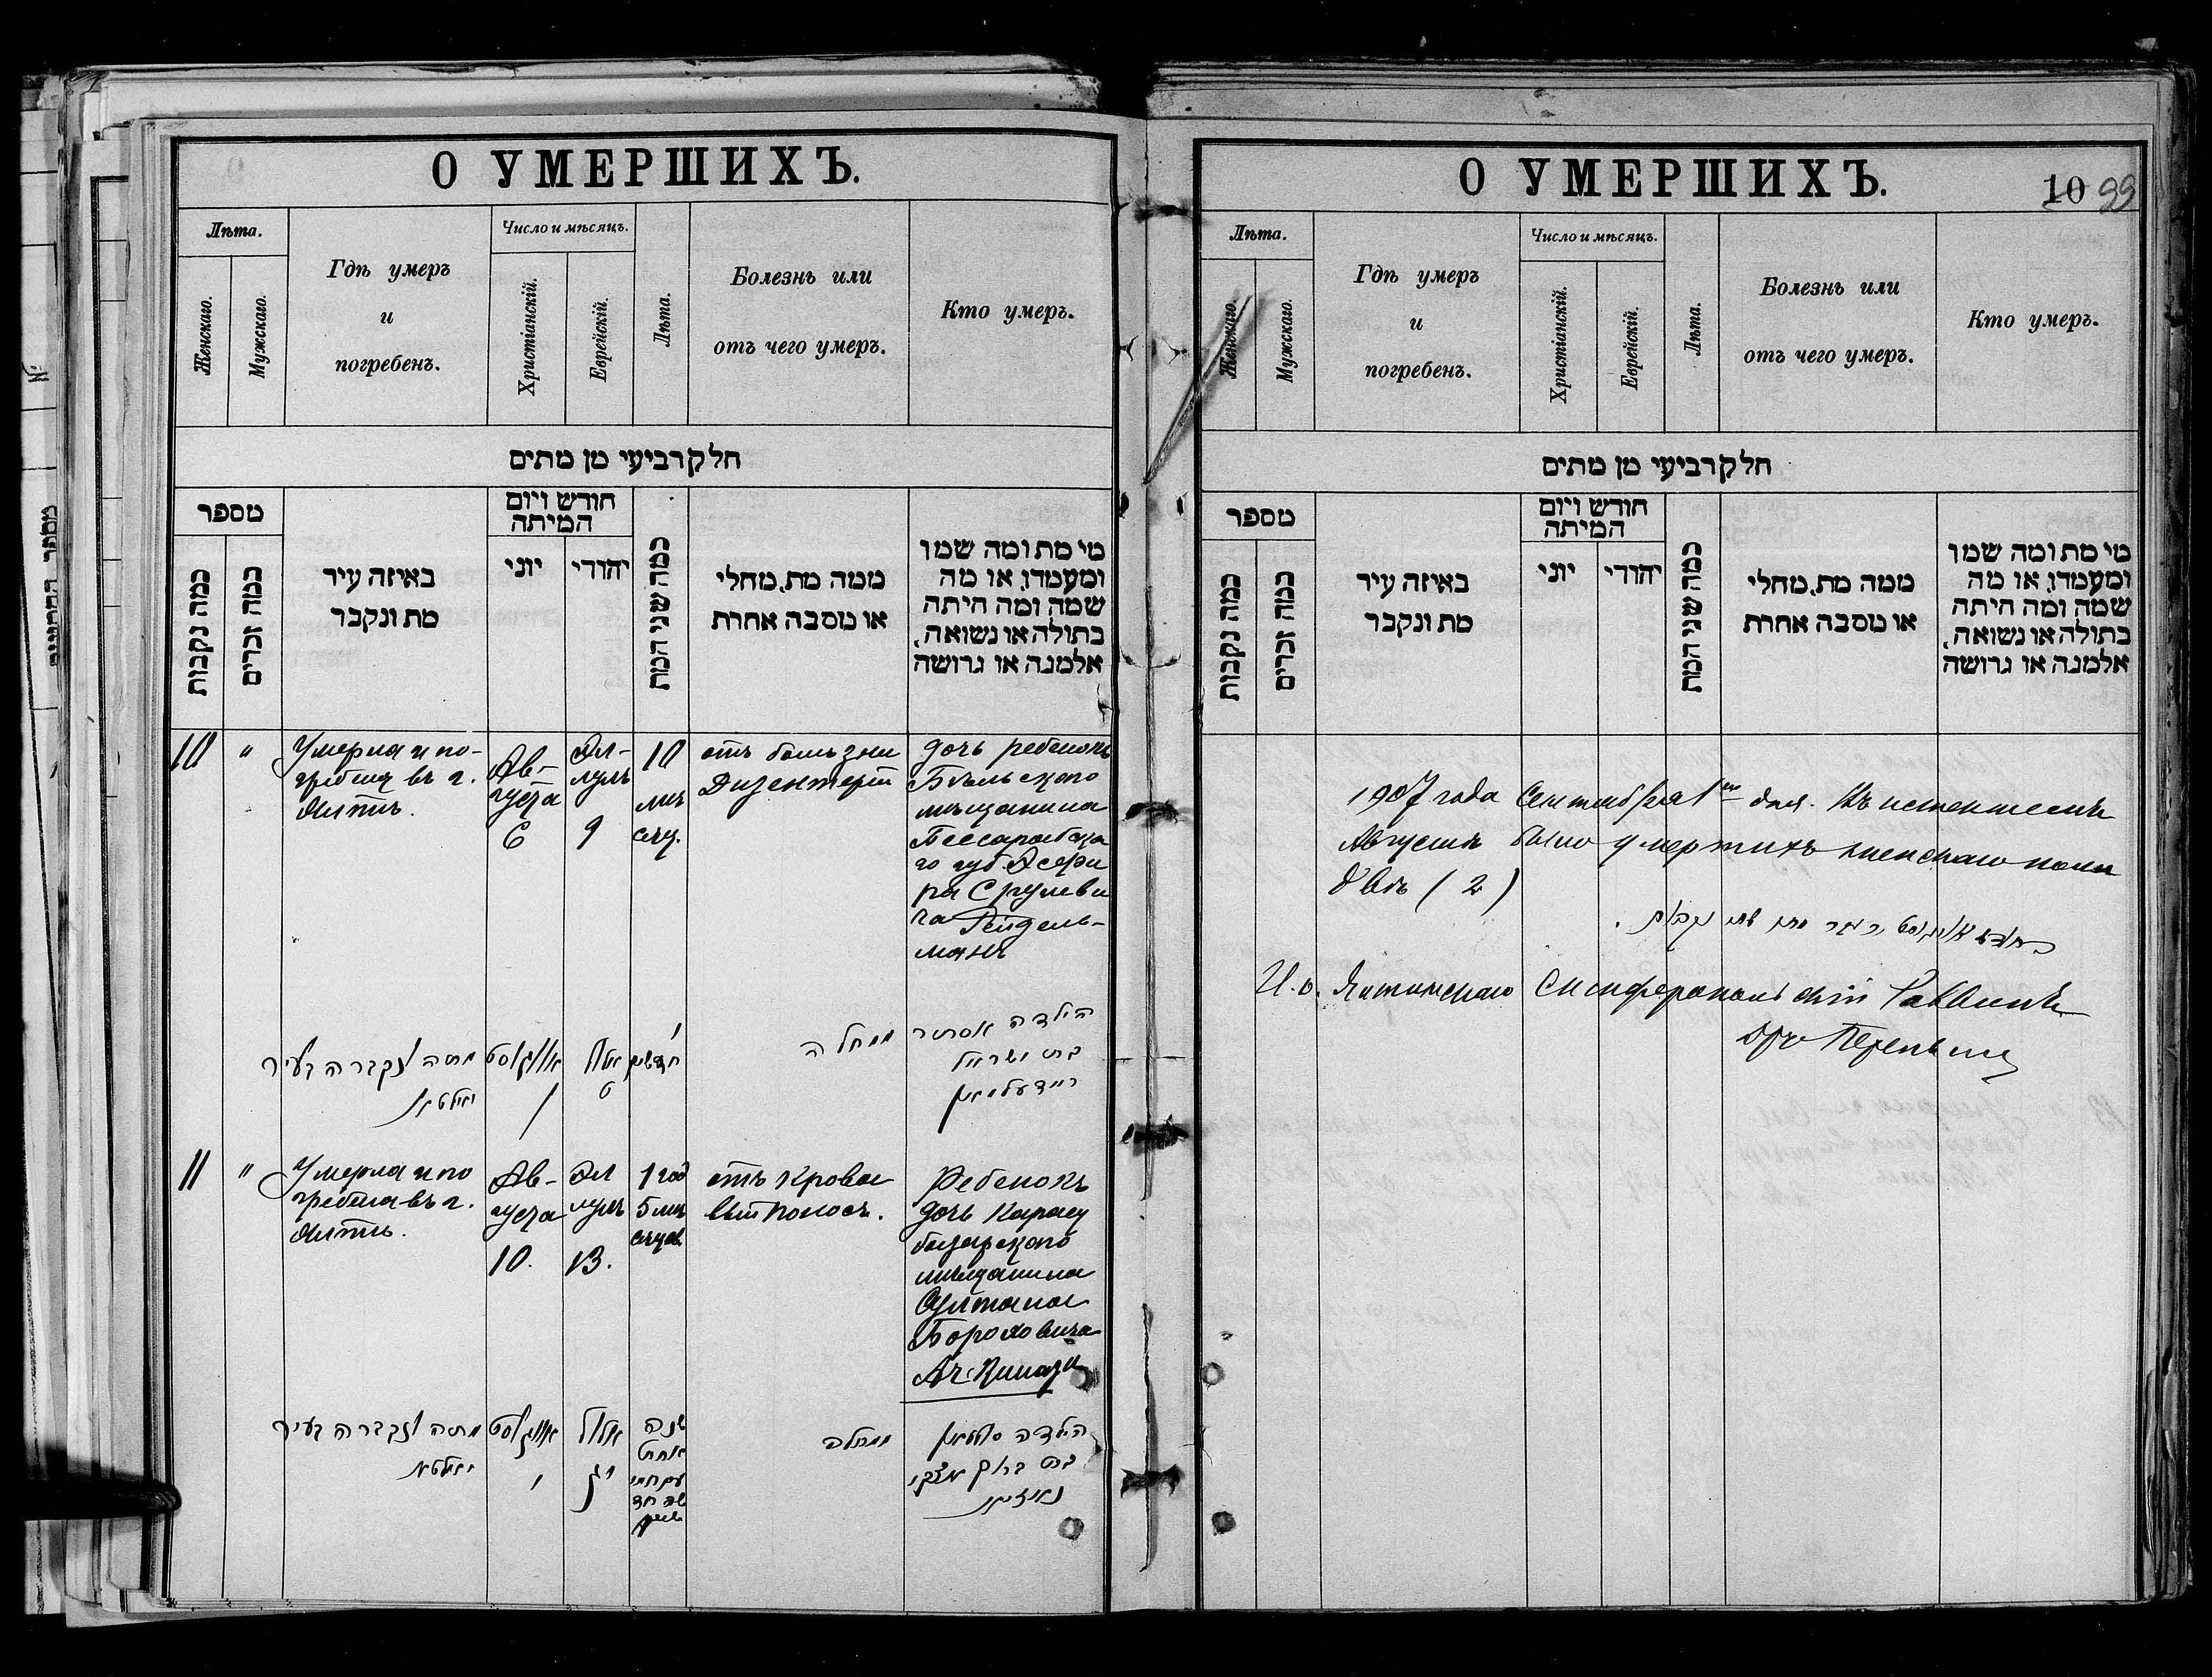 О УМЕРШИХЪ.
Лѣта.
Женскаго.
Мужскаго.
Гдѣ умеръ
и
погребенъ.
Число и мѣсяцъ.
Христіанскій.
Еврейскій.
Лѣта.
Болезнь или
отъ чего умеръ.
Кто умеръ.
חלק רביעי מן מתים
מספר
כמה נקבות
כמה זכרים
באיזה עיר
מת ונקבר
חודש ויום
המיתה
יוני
יהודי
כמה שני המת
ממה מת, מחלי
או מסבה אחרת
מי מת ומה שמו
ומעמדו, או מה
שמה ומה היתה
בתולה או נשואה,
אלמנה או גרושה
10
"
Умерла и по-
гребена въ г.
Ялтѣ.
Ав-
густа
6
Эл-
лулъ
9
10
мѣ
сяц.
отъ болѣзни
Дизентеріи
дочь ребенокъ
Бѣльскаго
мѣщанина
Бессарабска
го губ.
Срулеви
ча Рейдель-
манъ
מתה ונקברה בעיר
יאלטא
אויגוסט
אלול
ט
חדשים
מחלה
הילדה אסתר
בת ישראל
ריידעלמאן
11
"
Умерла и по
гребена въ г.
Ялтѣ.
Ав-
густа
10.
Эл
лулъ
13.
1 год
5 мѣ
сяцов.
отъ Кровав
вый поносъ.
Ребенокъ
дочь Карасу
базарскаго
мѣщанина
Султана
Бороховича
Ачкинази
מתה ונקברה בעיר
יאלטא
אויגוסט
י
אלול
י"ג
שנה
אחת
מחלה
הילדה סולטאן
בת ברוך
О УМЕРШИХЪ.
10 99
Лѣта.
Женскаго.
Мужскаго.
Гдѣ умеръ
и
погребенъ.
Число и мѣсяцъ.
Христіанскій.
Еврейскій.
Лѣта.
Болезнь или
отъ чего умеръ.
Кто умеръ.
חלק רביעי מן מתים
מספר
כמה נקבות
כמה זכרים
באיזה עיר
מת ונקבר
חודש ויום
המיתה
יוני
יהודי
כמה שני המת
ממה מת, מחלי
או מסבה אחרת
מי מת ומה שמו
ומעמדו, או מה
שמה ומה היתה
בתולה או נשואה,
אלמנה או גרושה
1907 года Сентября 1го дня. Въ истекшемъ
Августѣ было умершихъ женскаго пола
двѣ (2)
בחודש אויגוסט העבר מתו שתי נקבות.
И. о. Ялтинскаго Симферопольскій Раввинъ